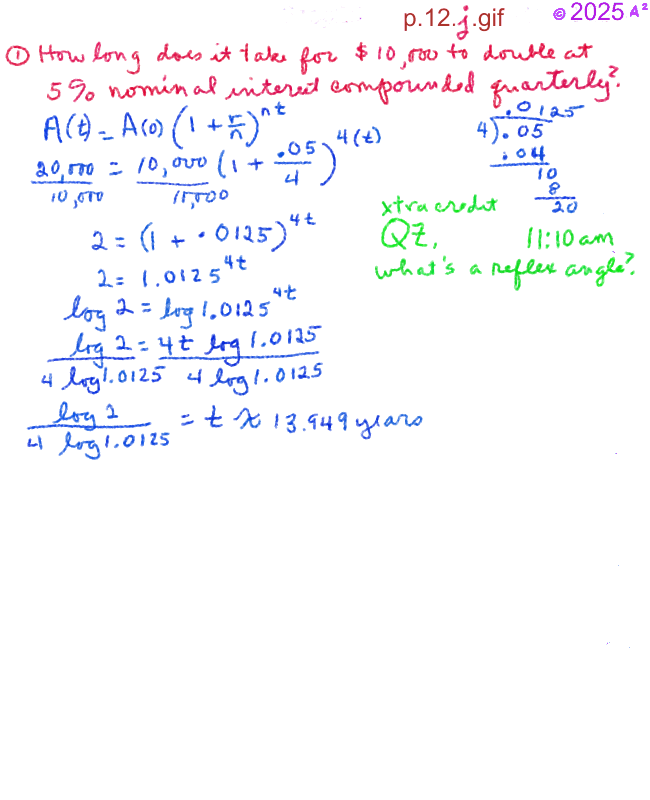 p.12.j.gif
© 2025 A²
① How long does it take for $10,000 to double at
5% nominal interest compounded quarterly?
A(t) = A(0) (1 + r/n)^nt
20,000 / 10,000 = 10,000 / 10,000 (1 + .05/4)^4(t)
2 = (1 + .0125)^4t
2 = 1.0125^4t
log 2 = log 1.0125^4t
log 2 / 4 log 1.0125 = 4t log 1.0125 / 4 log 1.0125
log 2 / 4 log 1.0125 = t ≈ 13.949 years
.0125
4).05
.04
10
8
20
xtra credit
QZ. 11:10 am
what's a reflex angle?